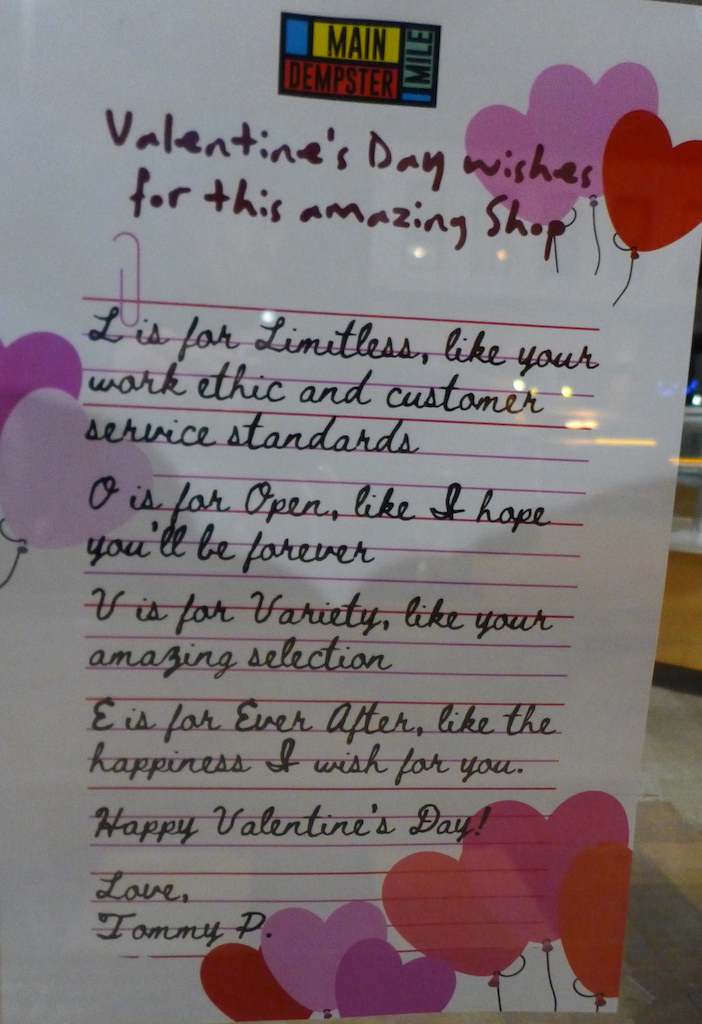 MAIN
DEMPSTER
MILE
Valentine's Day wishes
for this amazing Shop
L is for Limitless, like your
work ethic and customer
service standards
O is for Open, like I hope
you'll be forever
V is for Variety, like your
amazing selection
E is for Ever After, like the
happiness I wish for you.
Happy Valentine's Day!
Love,
Tommy P.